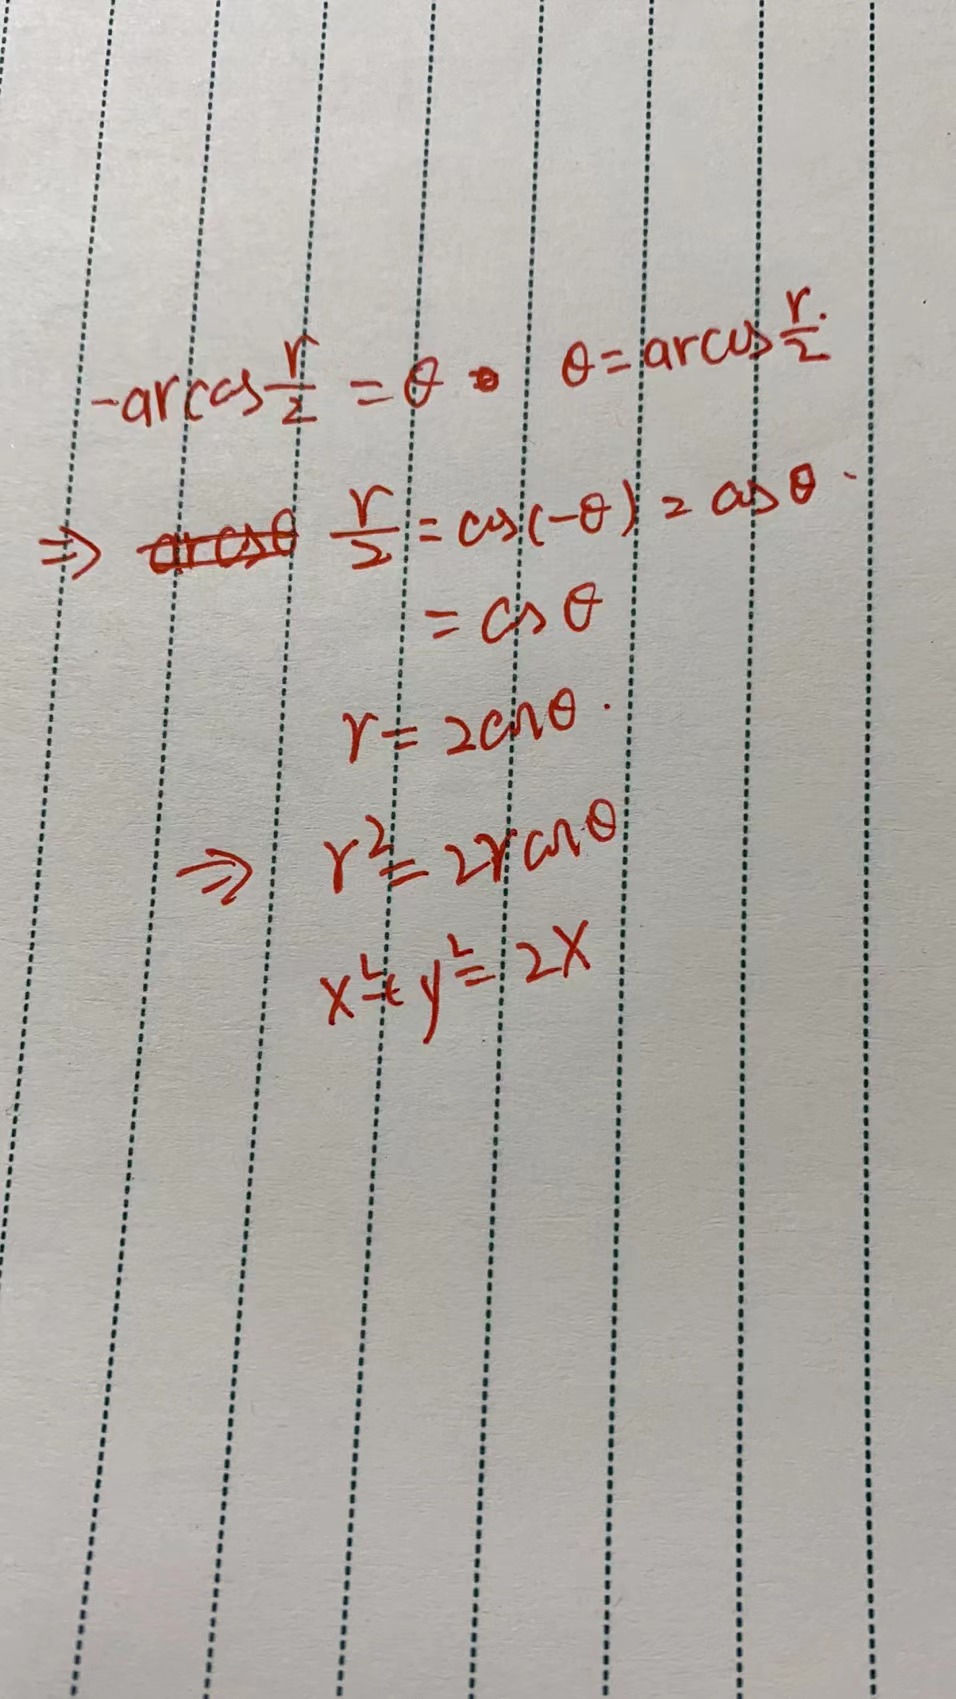 -arccos r/2 = θ θ = arccos r/2.
⇒ r/2 = cos(-θ) = cosθ.
= cosθ
r = 2cosθ.
⇒ r² = 2rcosθ
x² + y² = 2x